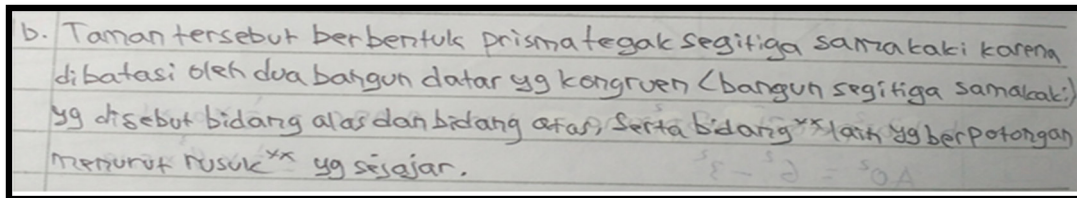 b. Taman tersebut berbentuk prisma tegak segitiga samakaki karena
dibatasi oleh dua bangun datar yg kongruen (bangun segitiga samakaki)
yg disebut bidang alas dan bidang atas, serta bidang** lain yg berpotongan
menurut rusuk** yg sejajar.